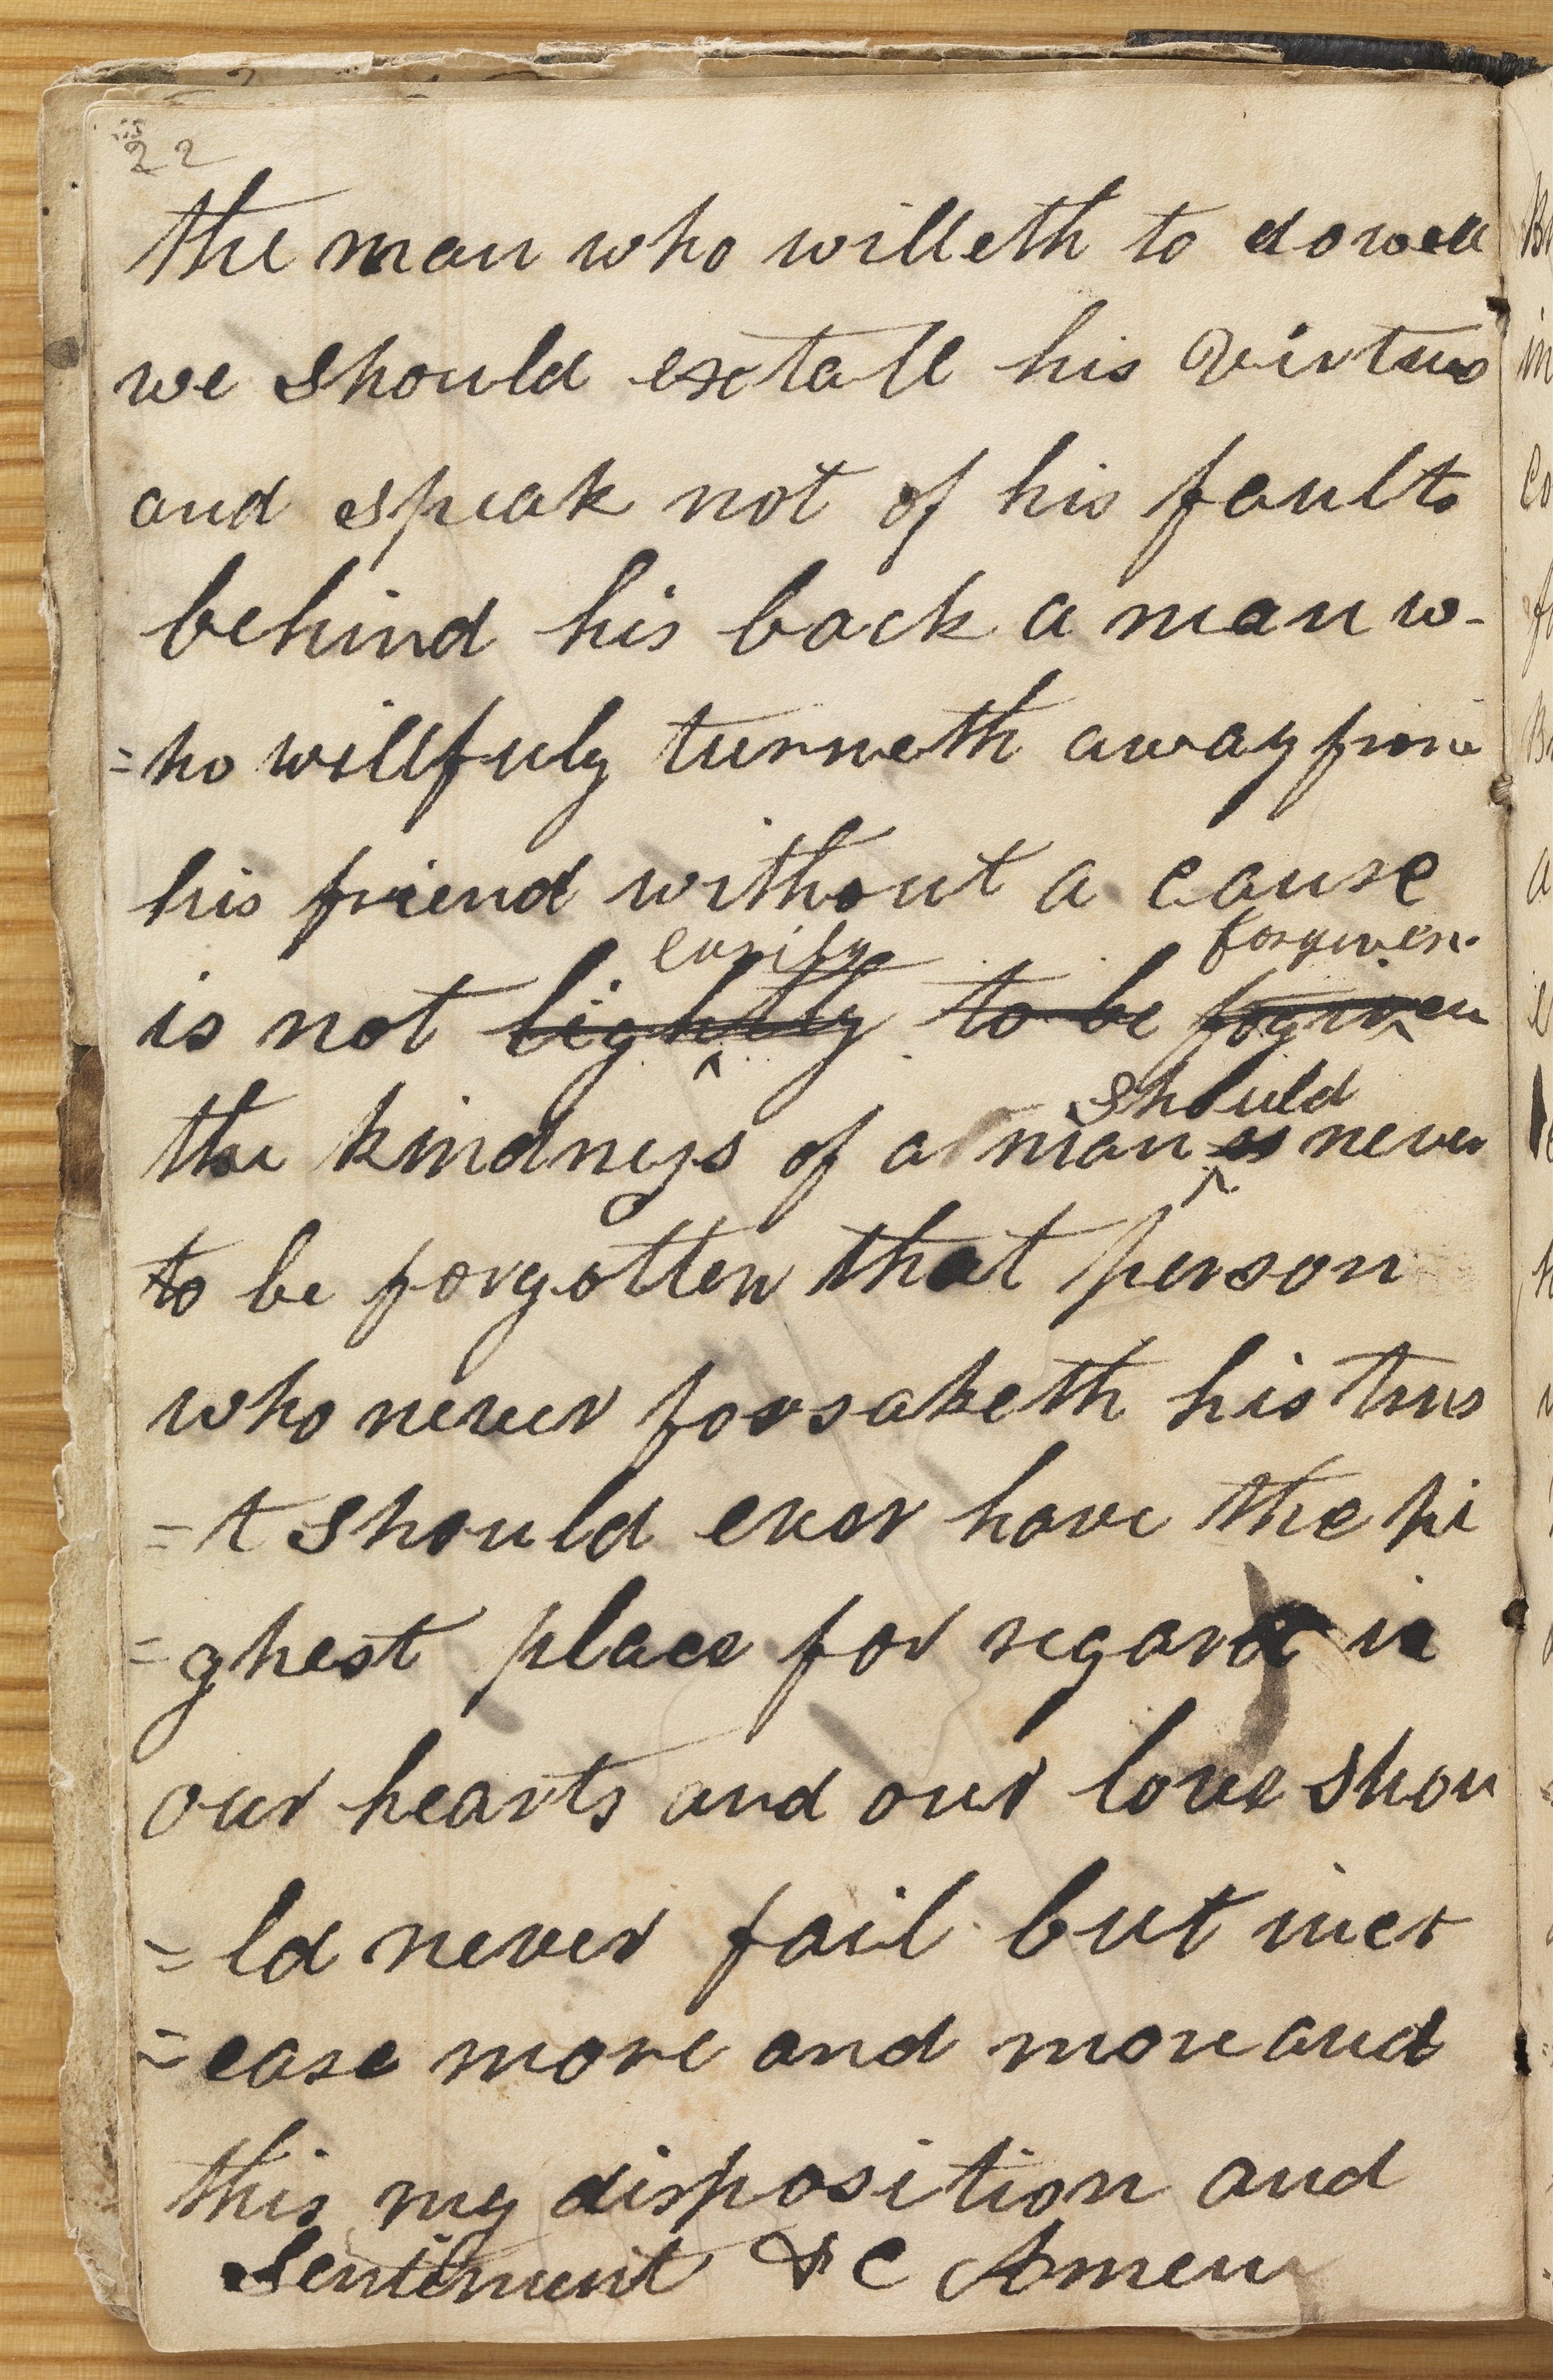 22
the man who willeth to do well
we should extall his Virtues
and speak not of his faults
behind his back a man w-
=ho willfuly turneth away from
his friend without a cause
easily forgiven.
is not lightly to be forgiven
should
the kindness of a man is never
to be forgotten that person
who never forsaketh his trus
=t should ever have the hi
=ghest place for regard in
our hearts and our love shou
=ld never fail but incr
=ease more and more and
this my disposition and
Sentiment &c Amen